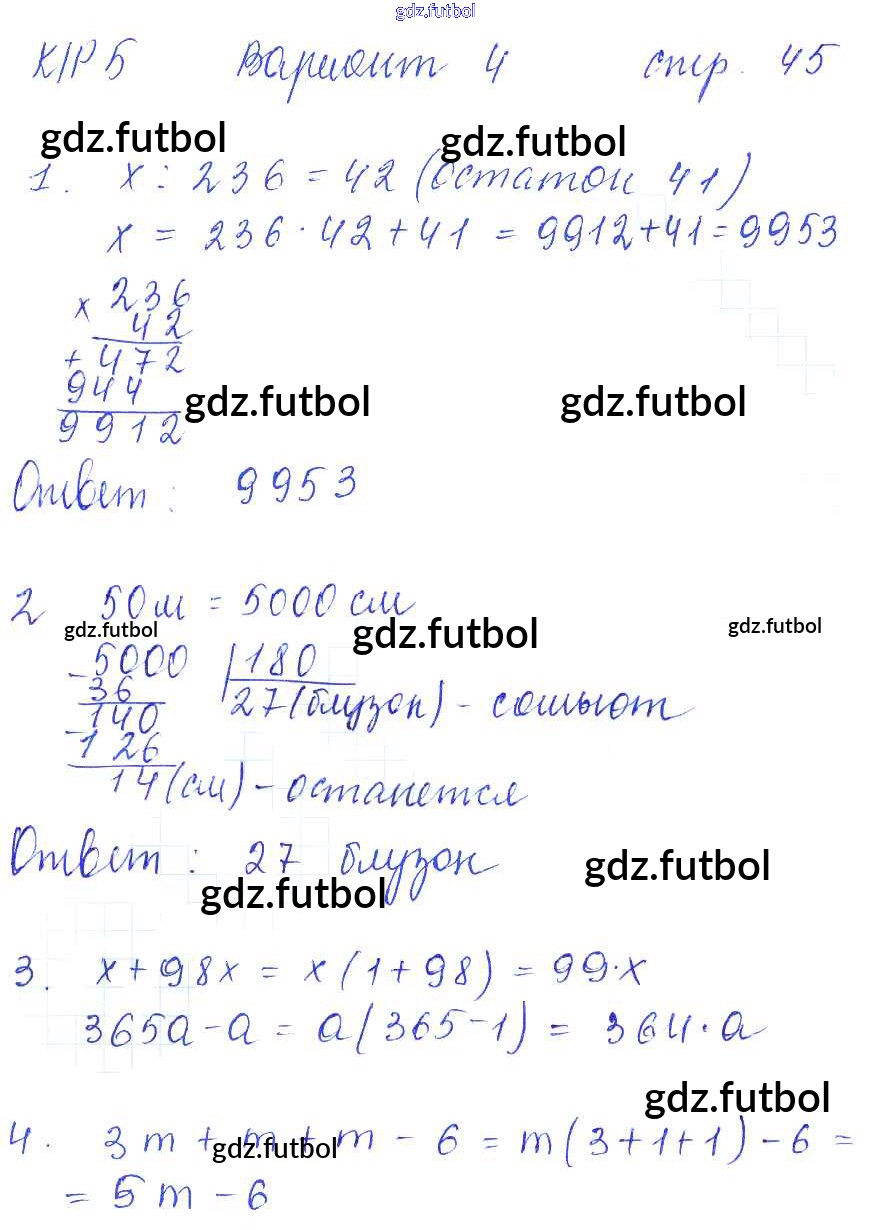 gdz.futbol
К/Р 5 Вариант 4 стр. 45
gdz.futbol gdz.futbol
1. x : 236 = 42 (остаток 41)
x = 236 · 42 + 41 = 9912 + 41 = 9953
x 236
42
+ 472
944
gdz.futbol gdz.futbol
9912
Ответ: 9953
2 50 м = 5000 см
gdz.futbol gdz.futbol gdz.futbol
- 5000 | 180
36 27 (блузок) - сошьют
- 140
126
14 (см) - останется
Ответ: 27 блузок
gdz.futbol gdz.futbol
3. x + 98x = x (1 + 98) = 99 · x
365a - a = a (365 - 1) = 364 · a
gdz.futbol
4. 3m + m + m - 6 = m (3 + 1 + 1) - 6 =
gdz.futbol
= 5m - 6